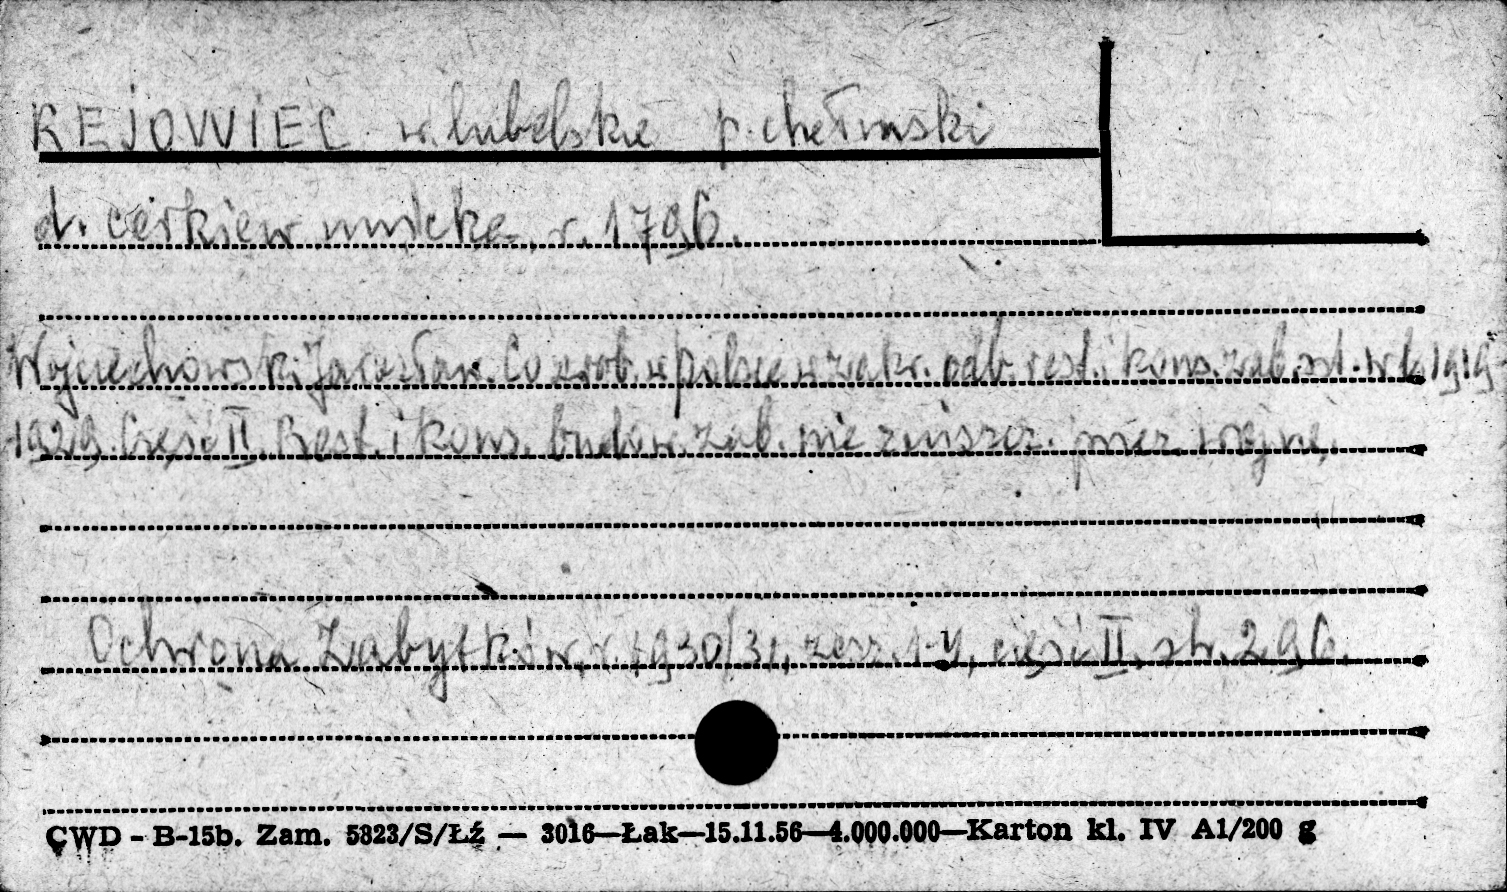 REJOWIEC w. lubelskie p. chełmski
d. cerkiew unicka, r. 1796.
Wojciechowski Jarosław. Co zrob. w Polsce w zakr. odb. rest. i kons. zab. szt. w l. 1919-
1929. Część II. Rest. i kons. budow. zab. nie zniszcz. przez wojnę.
Ochrona Zabytków, r. 1930/31, zesz. 1-4, część II, str. 296.
CWD - B-15b. Zam. 5823/S/Łź — 3016—Łak—15.11.56—4.000.000—Karton kl. IV A1/200 g